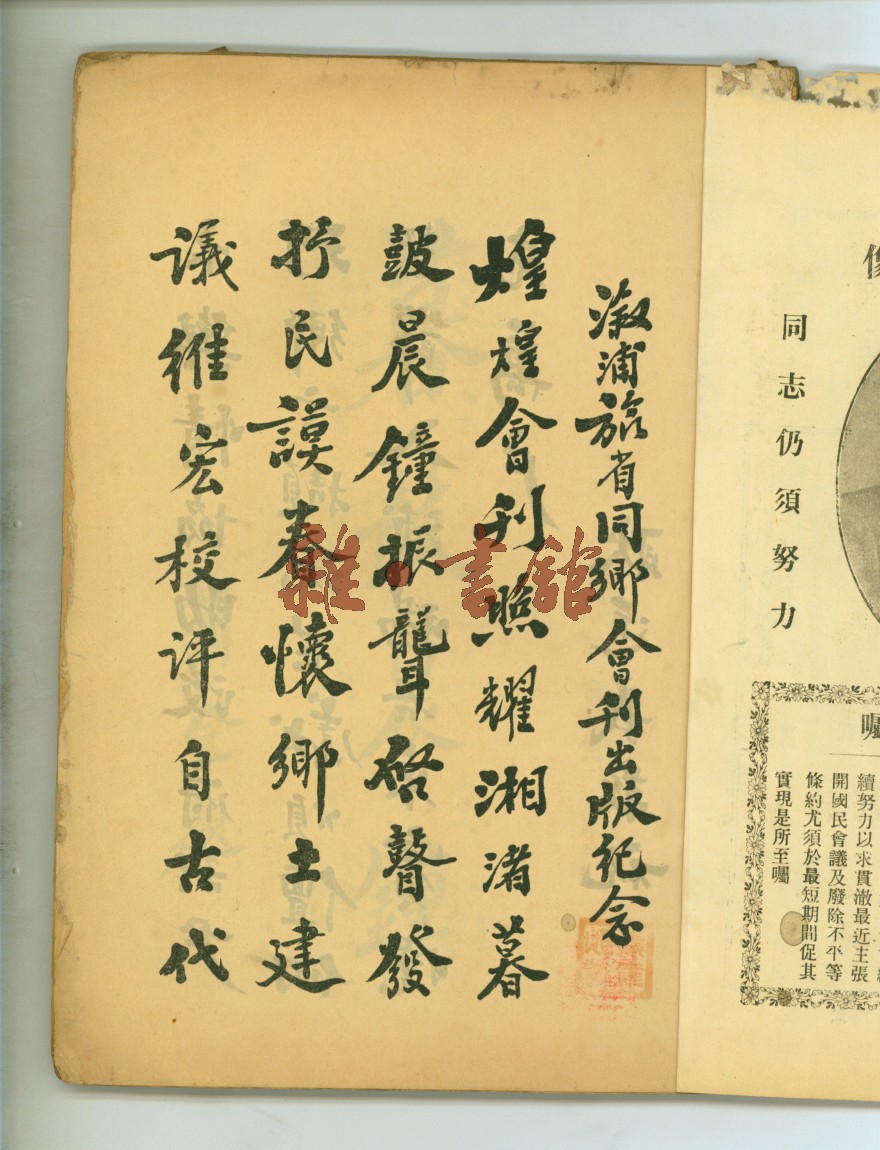 同志仍須努力
囑
續努力以求貫澈最近主張
開國民會議及廢除不平等
條約尤須於最短期間促其
實現是所至囑
溆浦旅省同鄉會刊出版紀念
煌煌會刊照耀湘渚暮
鼓晨鐘振聾啓瞽發
抒民謨眷懷鄉土建
議維宏校評自古代
雜·書館